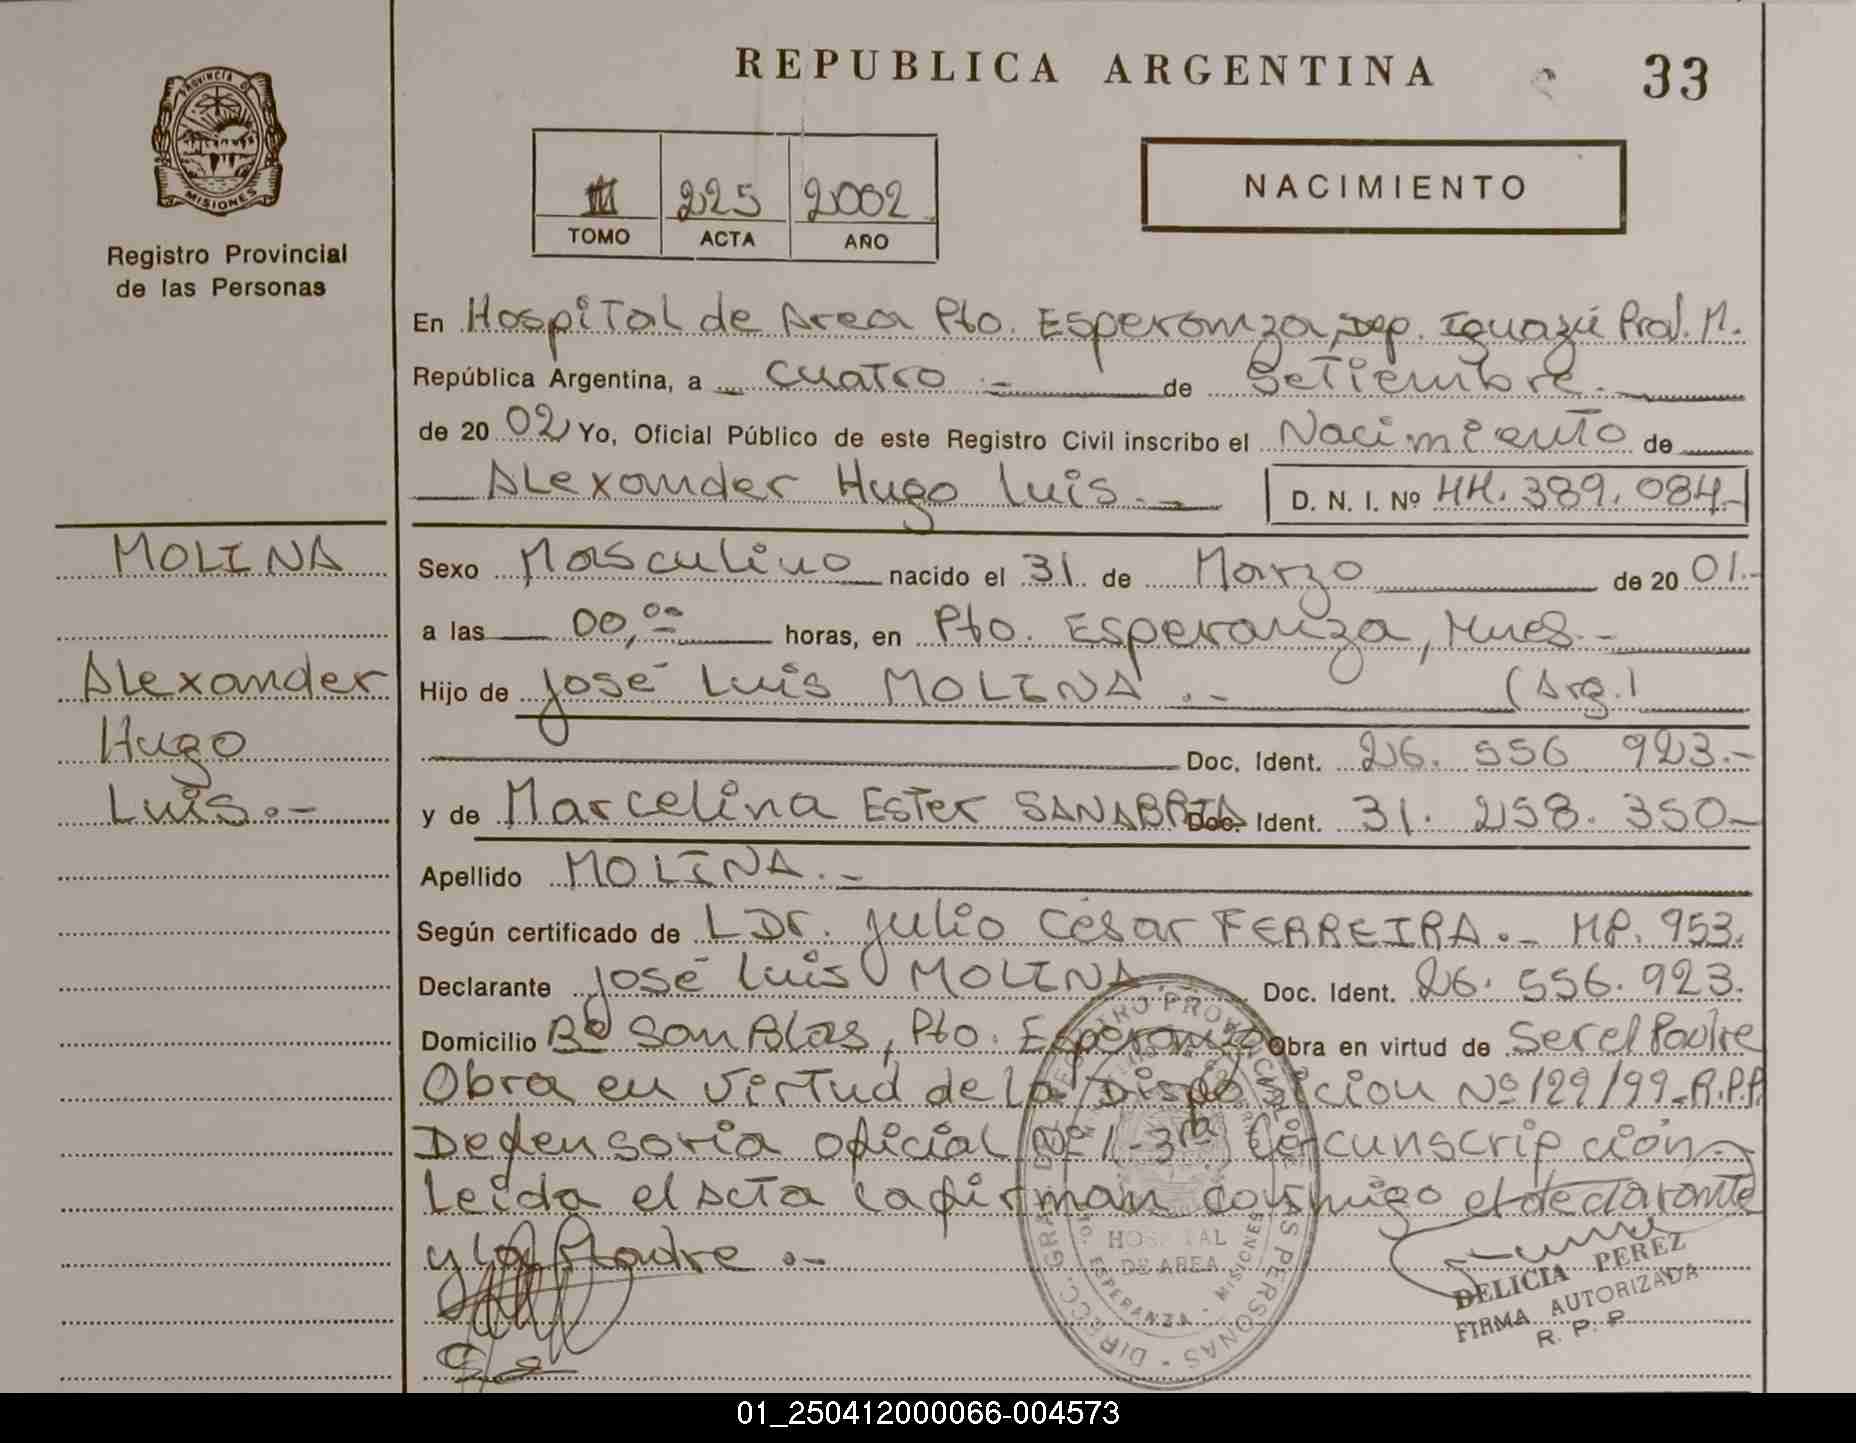 REPUBLICA ARGENTINA
33
PROVINCIA DE MISIONES
Registro Provincial
de las Personas
225 2002
TOMO ACTA AÑO
NACIMIENTO
En Hospital de Area Pto. Esperanza, Dep. Iguazú Prov. M.
República Argentina, a cuatro.- de Setiembre.
de 2002 Yo, Oficial Público de este Registro Civil inscribo el Nacimiento de
Alexander Hugo Luis.-
D. N. I. Nº 44.389.084-
MOLINA
Alexander
Hugo
Luis.-
Sexo Masculino nacido el 31 de Marzo de 2001.-
a las 00,00 horas, en Pto. Esperanza, Mnes.-
Hijo de José Luis MOLINA.- (Arg.)
Doc. Ident. 26. 556 923.-
y de Marcelina Ester SANABRIA Doc. Ident. 31. 258. 350-
Apellido MOLINA.-
Según certificado de LDr. Julio César FERREIRA.- MP. 953.
Declarante José Luis MOLINA Doc. Ident. 26. 556. 923.
Domicilio Bº San Blas, Pto. Esperanza Obra en virtud de Ser el Padre
Obra en virtud de la Disposicion Nº 129/99-R.P.P.
Defensoria oficial Nº 1-3ra Circunscripción-
Leida el Acta la firman conmigo el declarante
y la Madre.-
HOSPITAL
DE AREA
ESPERANZA - MISIONES
DELICIA PEREZ
FIRMA AUTORIZADA
R. P. P.
01_250412000066-004573